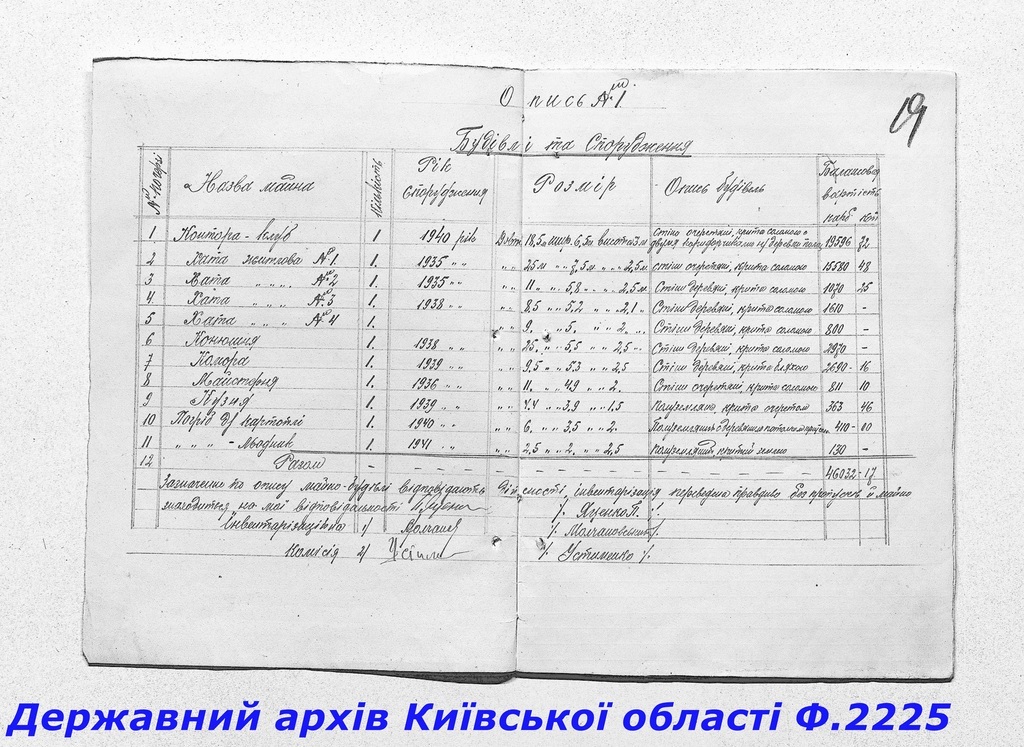 Опись № 1.
19
Будівлі та Спорудження
№№ по черзі Назва майна Кількість Рік спорудження Розмір Опись будівель Балансова вартість карб коп
1 Контора - клуб 1 1940 рік Довж. 18,5 м шир. 6,5 м висота 3 м Стіни очеретяні, крита соломою з двумя коридорчиками 19596 72
2 Хата житлова № 1. 1. 1935 " " " " 25 м " " 7,5 м " " 2,5 м Стіни очеретяні, крита соломою 15580 48
3 Хата " " " № 2 1. 1935 " " " " 11 " " 5,8 " " 2,5 м Стіни деревяні, крита соломою 1070 25
4. Хата " " " № 3 1. 1938 " " " " 8,5 " " 5,2 " " 2,1 Стіни деревяні, крита соломою 1610 -
5 Хата " " " № 4 1. " " 9. " " 5, " " 2 Стіни деревяні, крита соломою 800 -
6 Конюшня 1. 1938 " " " " 25. " " 5,5 " " 2,5 Стіни деревяні, крита соломою 2970 -
7 Комора 1. 1939 " " " " 9,5 " " 5,3 " " 2,5 Стіни деревяні, крита бляхою 2690 - 16
8 Майстерня 1. 1936 " " " " 11. " " 4,9 " " 2. Стіни очеретяні, крита соломою 811 10
9 Кузня 1. 1939 " " " " 4.4 " " 3,9 " " 1.5 Полуземляна, крита очеретом 363 46
10 Погріб д/ картоплі 1. 1940 " " " " 6. " " 3,5 " " 2. Полуземляний з деревяною 410 - 00
11 " " " - Льодник 1. 1941 " " " " 2,5 " " 2 " " 2,5 Полуземляний, критий землею 130 -
12 Разом - - - - - - 46032 - 17
Зазначене по опису майно-будівлі відповідають дійсності, інвентаризація переведена правдиво без пропусків й майно
знаходиться на мої відповідальності /. Яценко П. /.
Інвентаризаційна 1/ /. Молчановський /.
Комісія 2/ /. Устименко /.
Державний архів Київської області Ф.2225